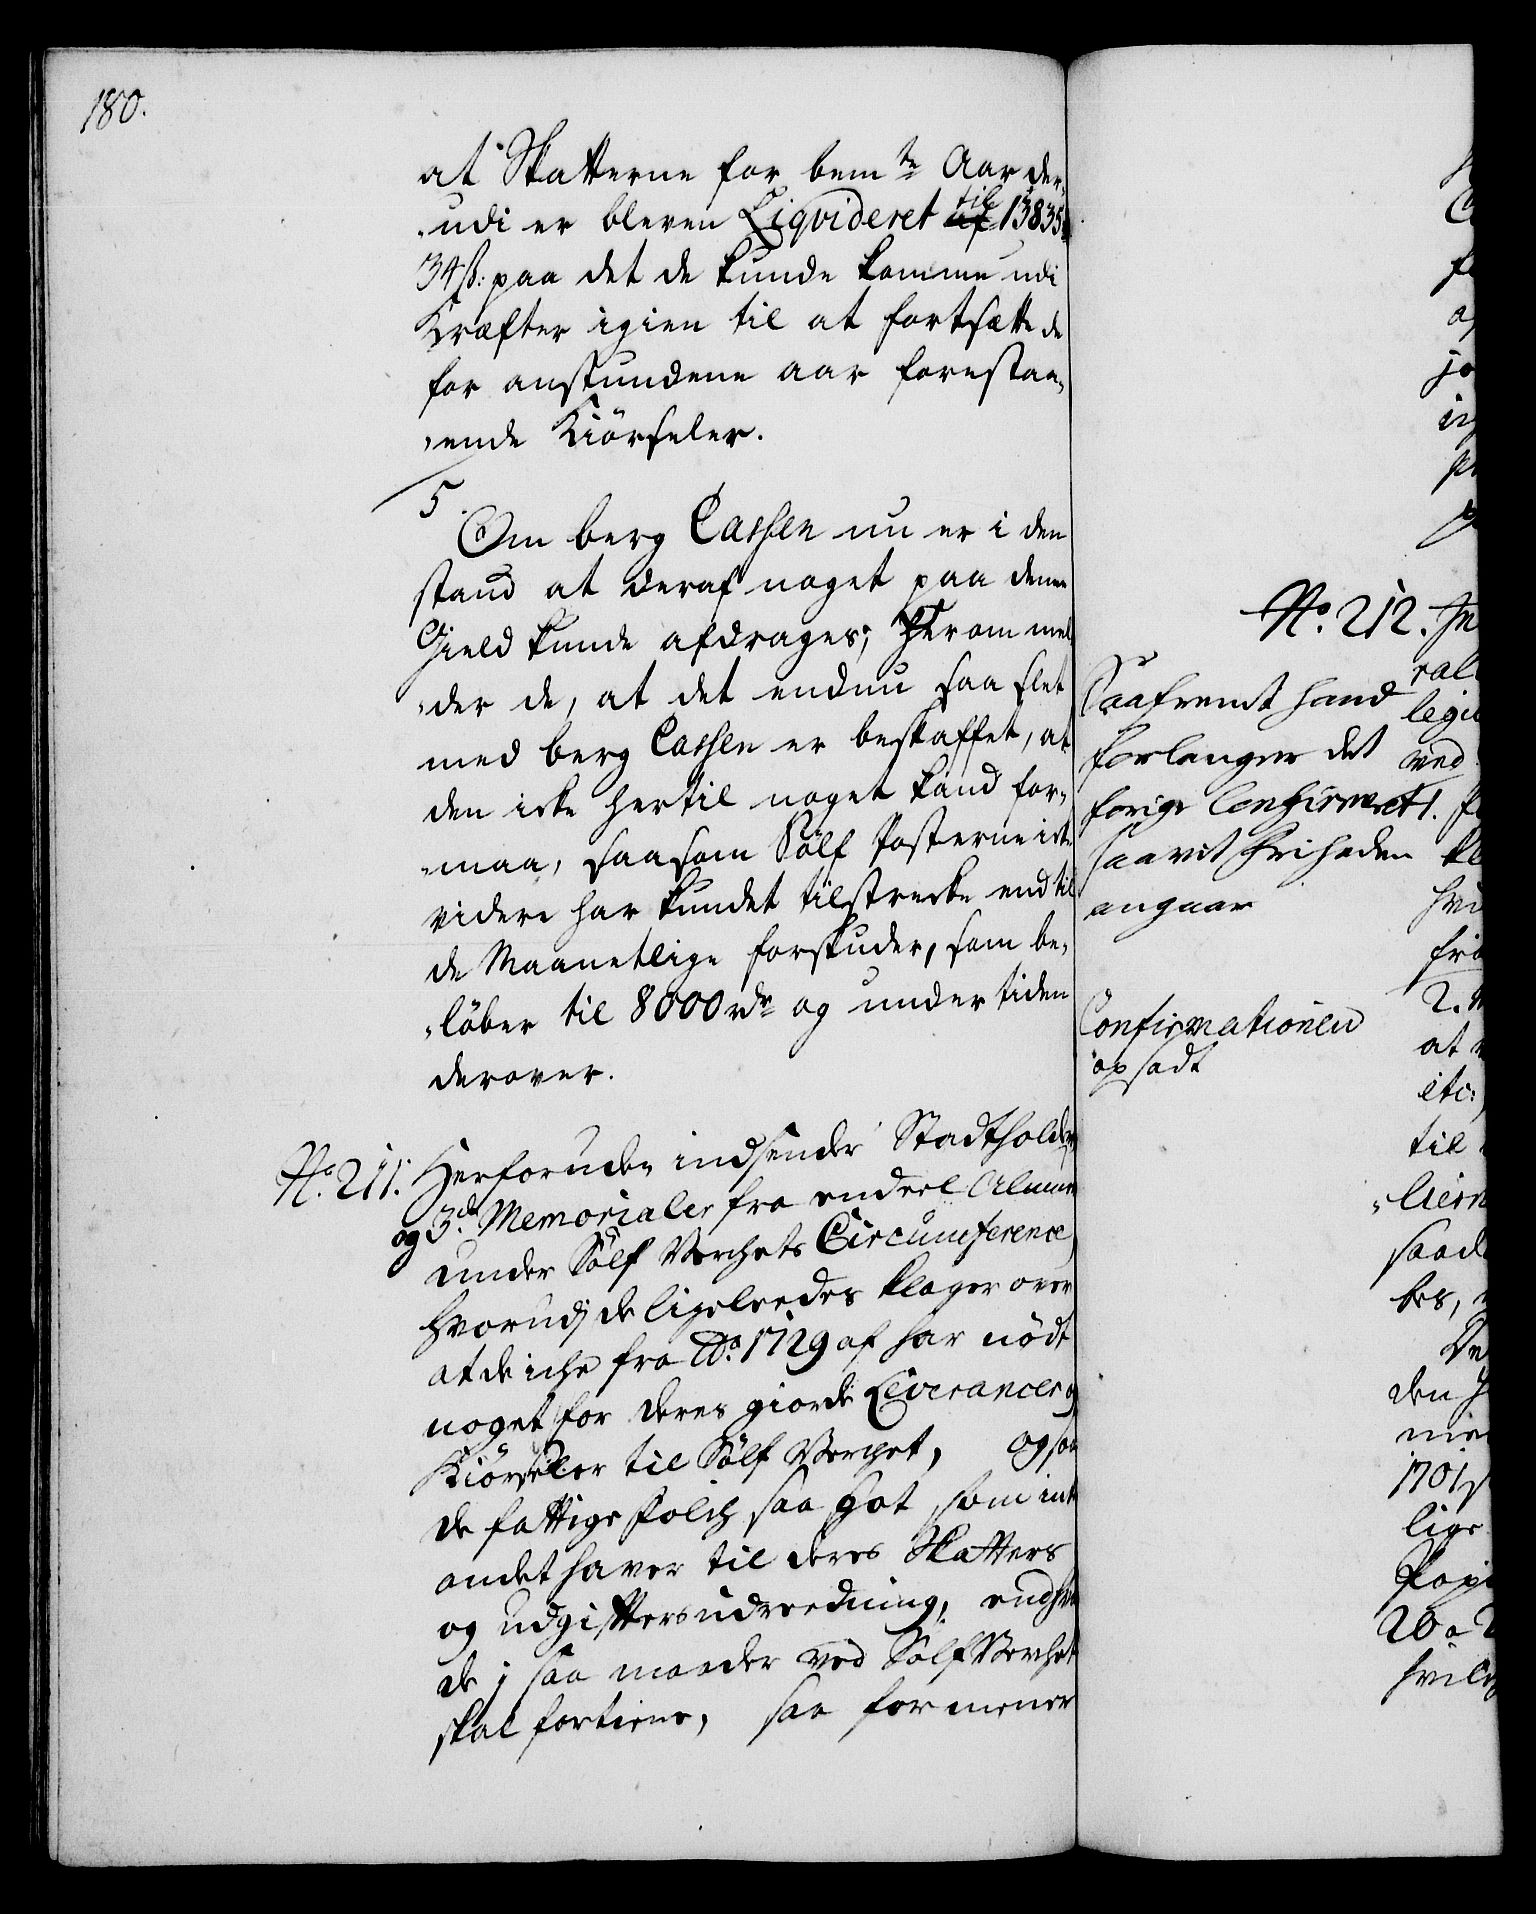 180.
at Skatterne for bem.te Aar der,
„udi er bleven Liqvideret til 13835
34 ß: paa det de kunde komme udi
Kræfter igien til at fortsætte de
for anstundene aar forestaa„
„ende Kiörseler.
5.
Om berg Cassen nu er i den
stand at deraf noget paa denne
Gield kunde afdrages; Herom mel
„der de, at det endnu saa slet
med berg Cassen er beskaffet, at
den icke hertil noget kand for„
„maa, saasom Sölf Posterne icke
videre har kundet tilstrecke end til
de Maanetlige forskuder, som be„
„löber til 8000 rdr og under tiden
derover.
No. 211. Herforuden indsender Stadtholder
og 3de Memorialer fra endeel Almue
under Sölf Verchets Circumference,
hvorudj de ligeleedes klager over
at de iche fra Ao. 1729 af har nödt
noget for deres giorde Leverancer og
Kiörseler til Sölf Verchet, og saa
de fattige Folch saa got som int
andet haver til deres Skatters
og Udgifters udreedning, end hva
de j saa maader ved Sölf Verchet
skal fortiene, saa formener
No. 212.
Saafremt hand
forlanger det
forige Confirmeret
saavit friheden
angaar
Confirmationen
opsadt
ral
legi
ved
1.
kl
hvi
fri
2.
at
etc:
til
saad
bes,
den
1701
lige
Papi
20 a 2